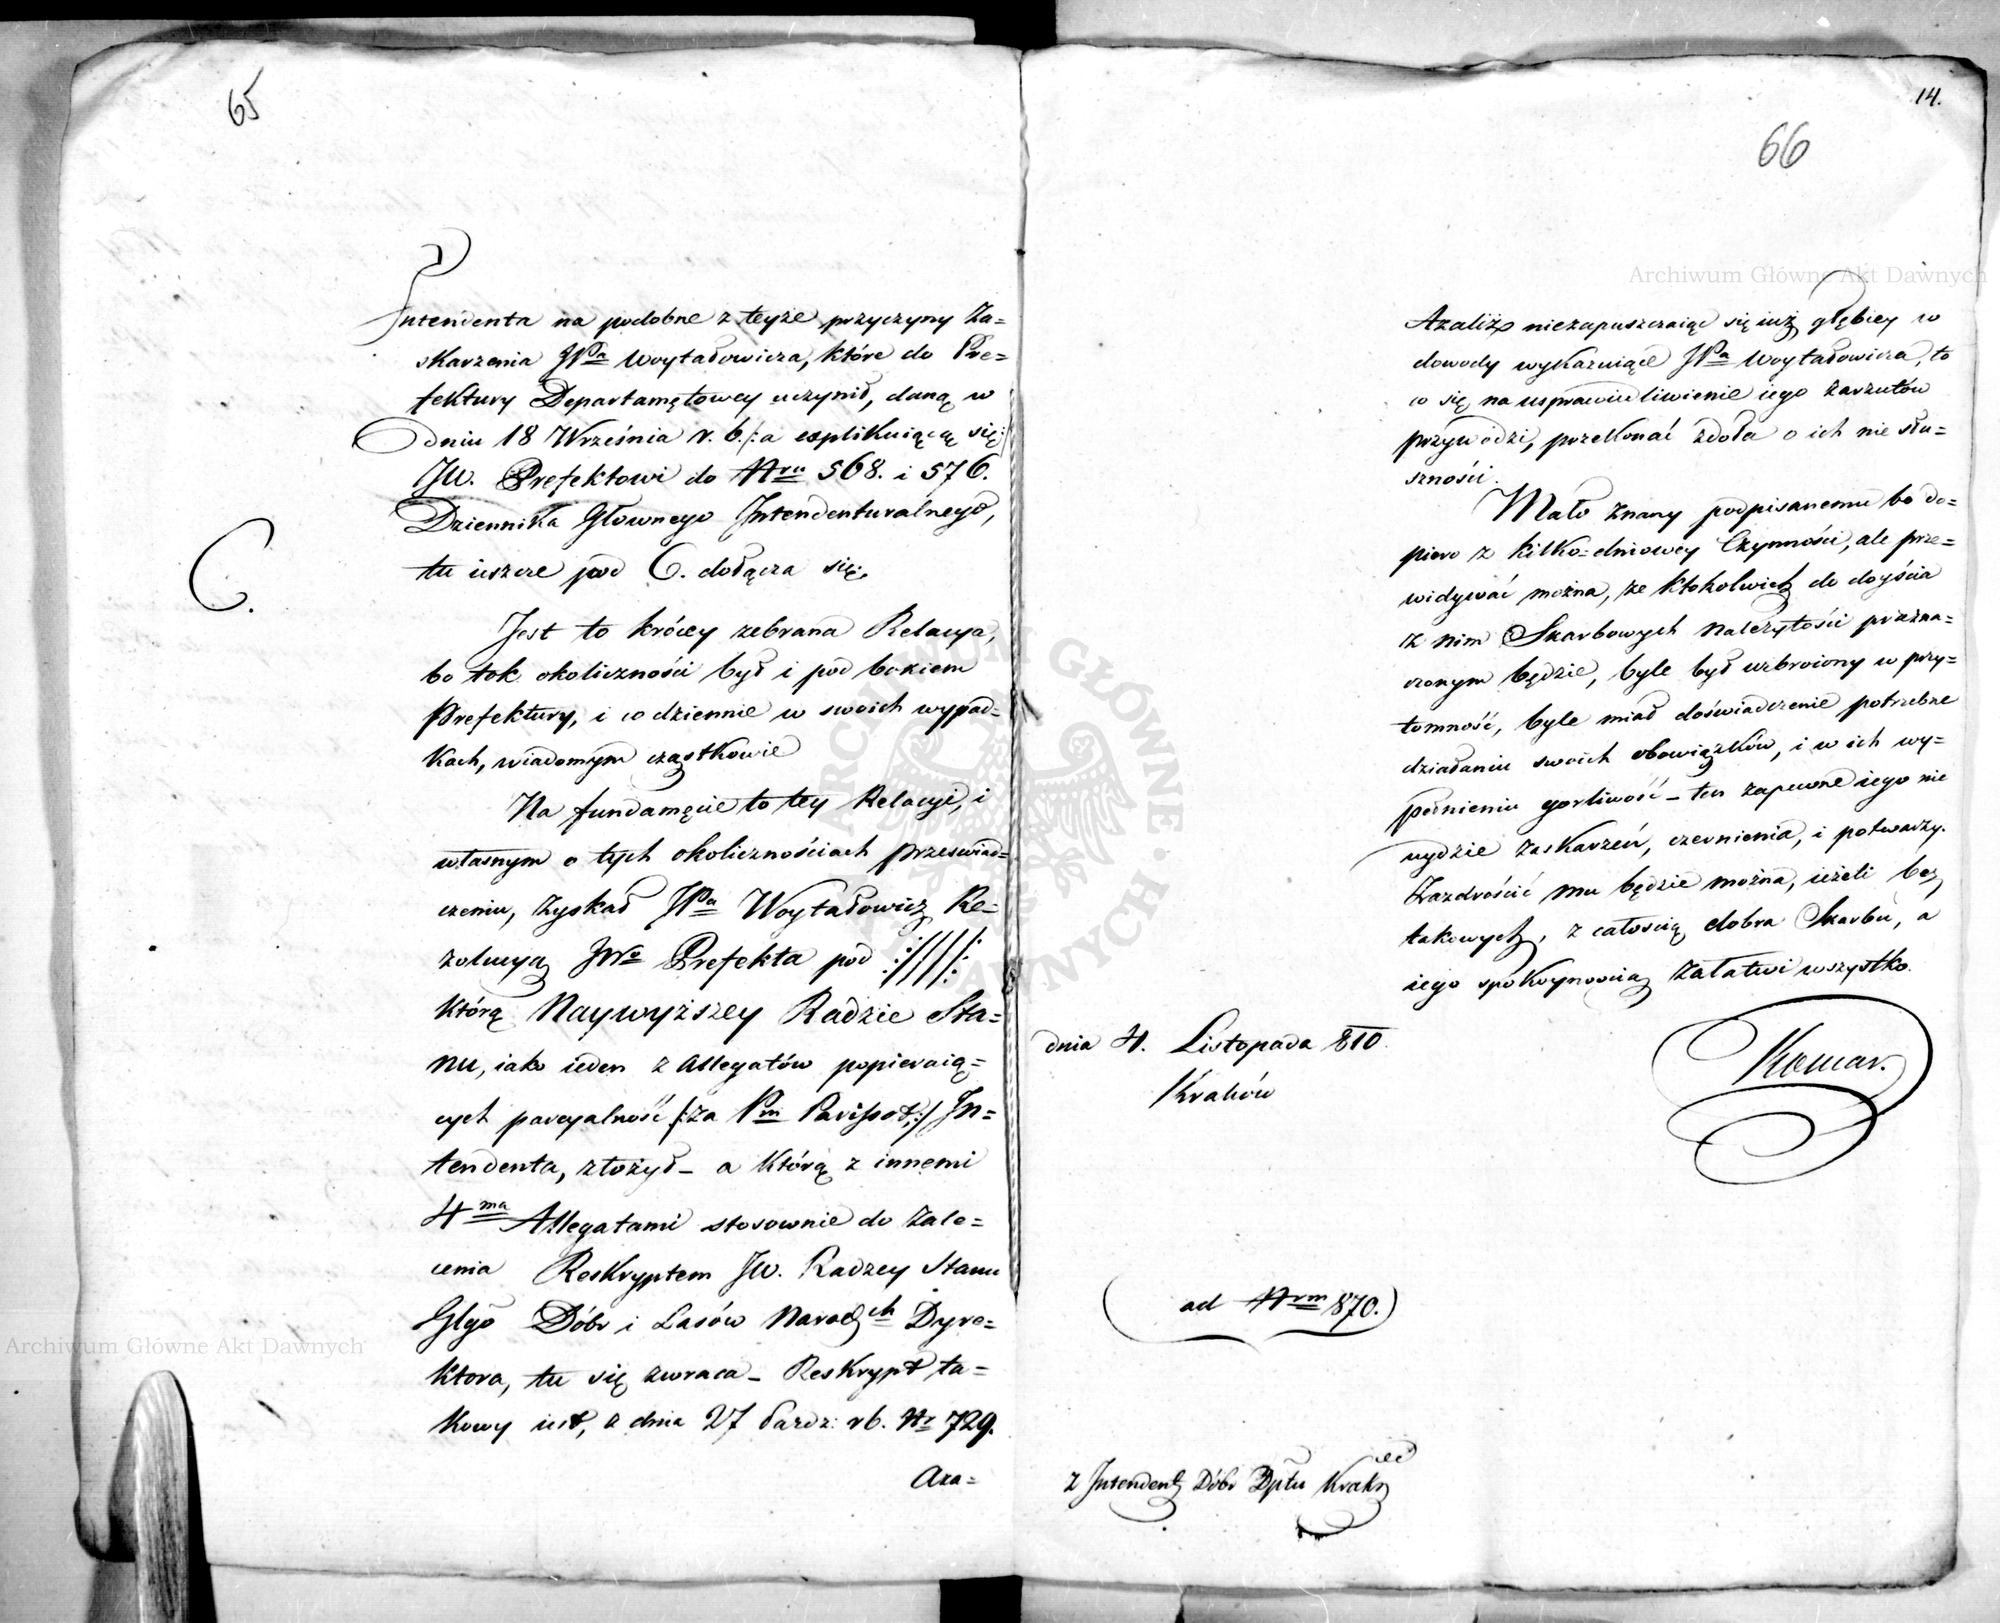 65
Intendenta na podobne z teyże przyczyny Za=
skarzenia JPa Woytałowicza, które do Pre=
fektury Departamętowey uczynił, daną w
dniu 18 Września r. b. /:a explikuiącą się:/
JW. Prefektowi do Nru 568. i 576.
Dziennika Głownego Intendenturalnego,
tu ieszcze pod C. dołącza się.
C.
Jest to krócey zebrana Relacya,
bo tok okoliczności był i pod bokiem
Prefektury, i codziennie w swoich wypad=
kach, wiadomym cząstkowie
Na fundamęcie to tey Relacyi, i
własnym o tych okolicznościach przeswiad=
czeniu, zyskał JPa Woytałowicz Re=
zolucyą JWo Prefekta pod :////:
którą Naywyższey Radzie Sta=
nu, iako ieden z Allegatów popieraią=
cych parcyalność /:za Pm Parissot,:/ In=
tendenta, złożył – a którą z innemi
4ma Allegatami stosownie do zale=
cenia Reskryptem JW. Radzey Stanu
Glgo Dóbr i Lasów Narodch Dyre=
ktora, tu się zwraca – Reskrypt ta=
kowy iest, z dnia 27 Pazdz: rb. Nr 729.
Aza=
14.
66
Azaliż niezapuszczaiąc się iuż głębiey w
dowody wykazuiące JPa Woytałowicza, to
co się na usprawiedliwienie iego zarzutów
przywodzi, przekonać zdoła o ich nie słu=
szności.
Mało znany podpisanemu bo do=
piero z kilko=dniowey Czynności, ale prze=
widywać można, że ktokolwiek do doyścia
z nim Skarbowych należytości przezna=
czonym będzie, byle był uzbroiony w przy=
tomność, byle miał doświadczenie potrzebne
działaniu swoich obowiązków, i w ich wy=
pełnieniu gorliwość – ten zapewne iego nie
uydzie zaskarzeń, czernienia, i potwarzy.
Zazdrościć mu będzie można, ieżeli bez
takowych, z całością dobra Skarbu, a
iego spokoynością załatwi wszystko.
dnia 4. Listopada 810.
Kraków
Komar.
(ad Nrm 870.)
Z Intendent Dóbr Dptu Krakgo
Archiwum Główne Akt Dawnych
Archiwum Główne Akt Dawnych
ARCHIWUM GŁÓWNE AKT DAWNYCH